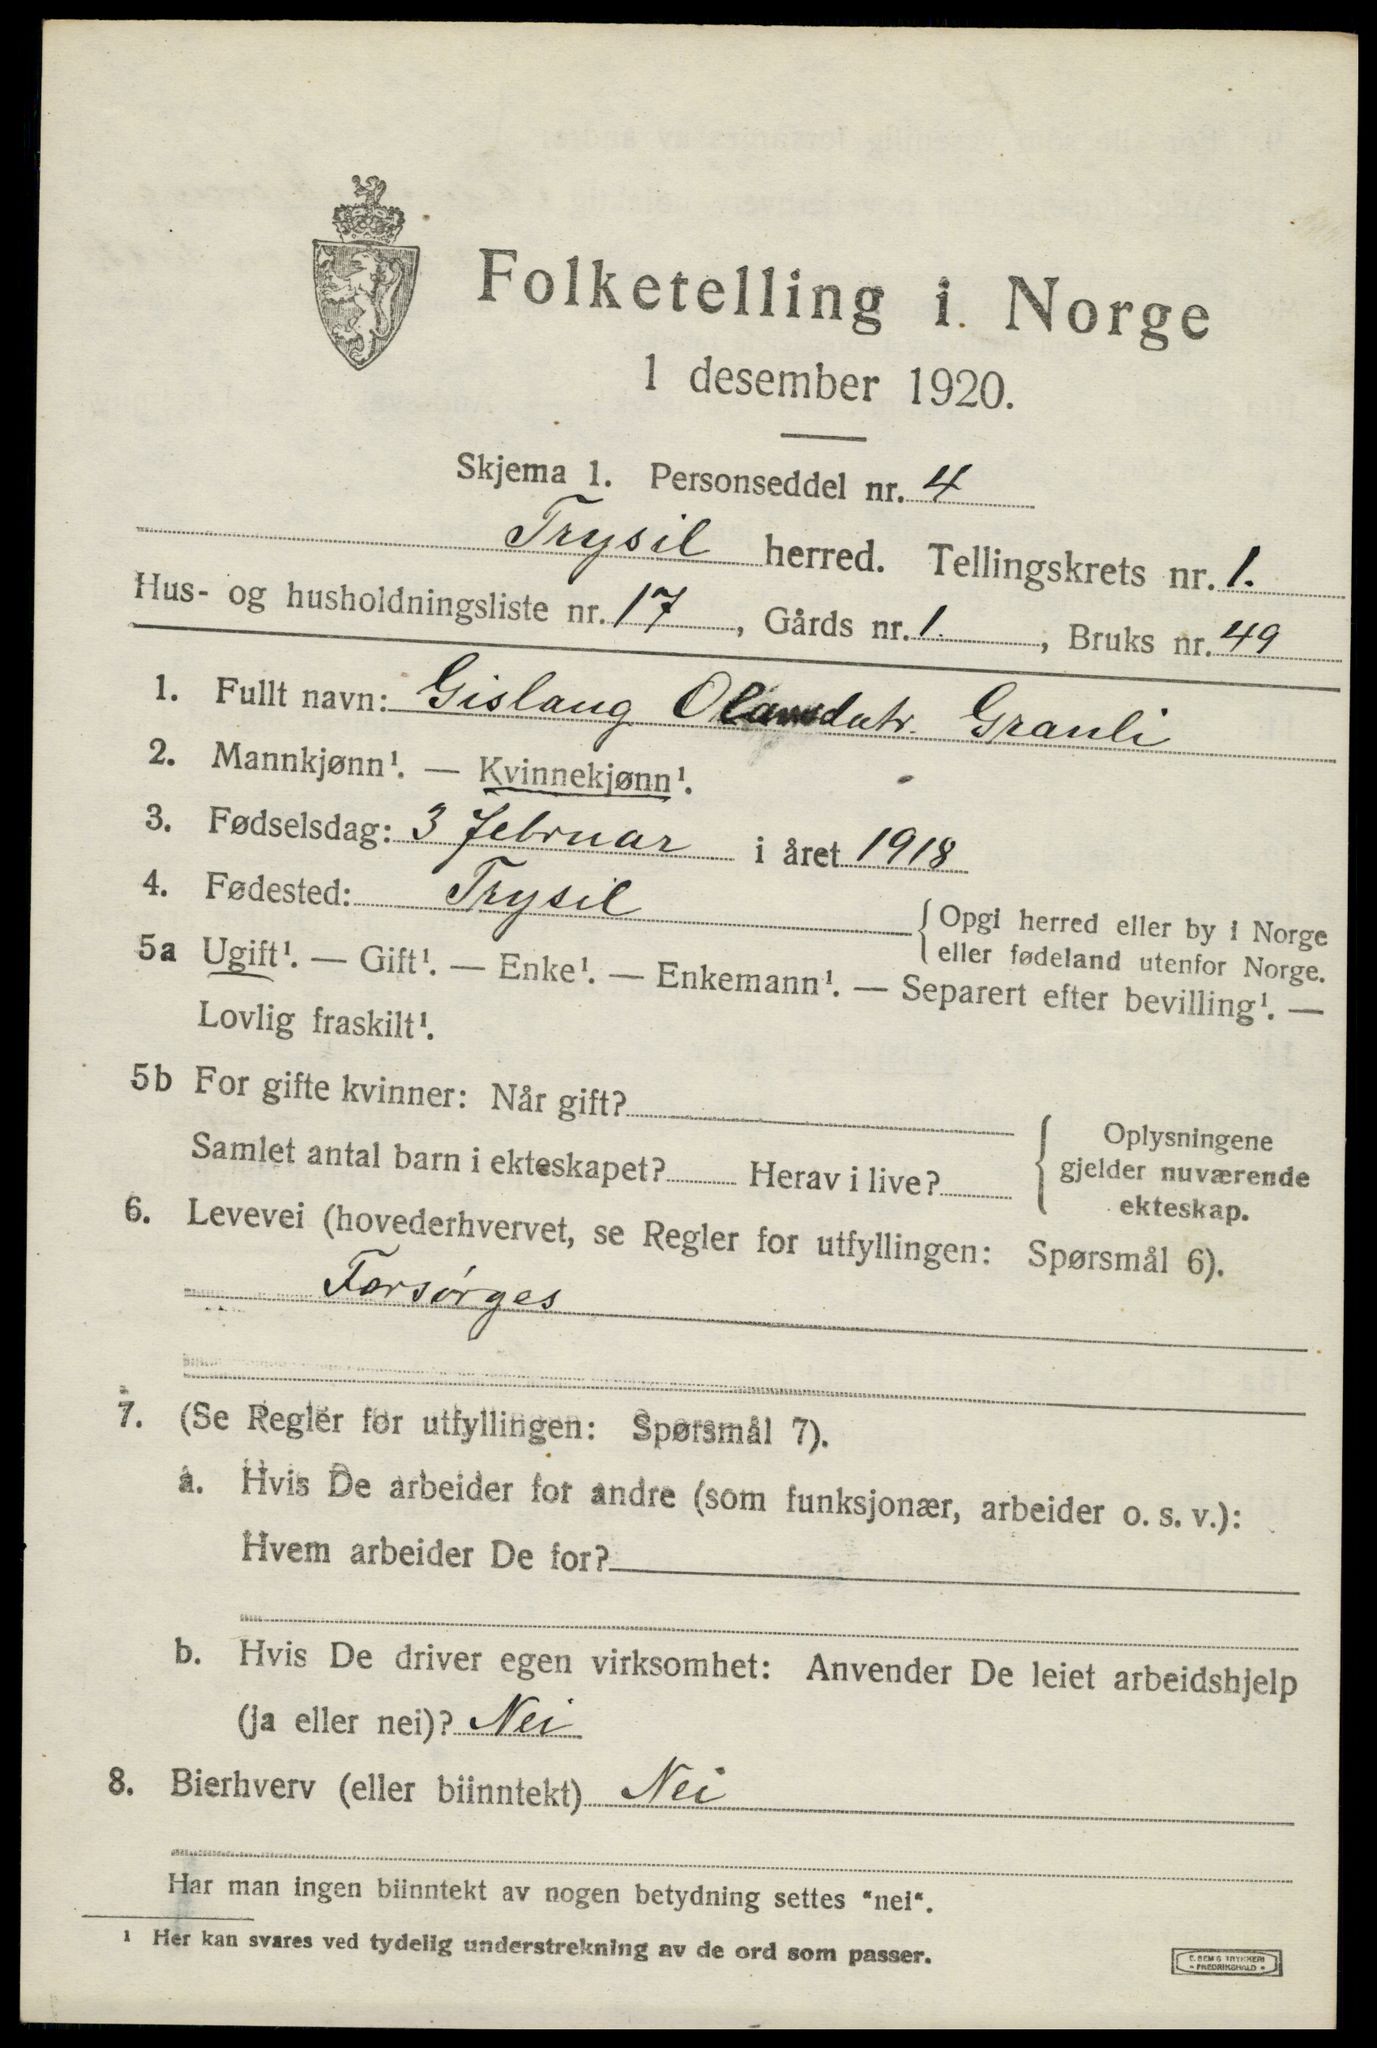 Folketelling i Norge
1 desember 1920.
Skjema 1. Personseddel nr. 4
Trysil herred. Tellingskrets nr. 1.
Hus- og husholdningsliste nr. 17, Gårds nr. 1., Bruks nr. 49
1. Fullt navn: Gislaug Olavsdatr. Granli
2. Mannkjønn¹. — Kvinnekjønn¹.
3. Fødselsdag: 3 februar i året 1918
4. Fødested: Trysil
{ Opgi herred eller by i Norge
eller fødeland utenfor Norge.
5a Ugift¹. — Gift¹. — Enke¹. — Enkemann¹. — Separert efter bevilling¹. —
Lovlig fraskilt¹.
5b For gifte kvinner: Når gift?
Samlet antal barn i ekteskapet? Herav i live?
{ Oplysningene
gjelder nuværende
ekteskap.
6. Levevei (hovederhvervet, se Regler for utfyllingen: Spørsmål 6).
Forsørges
7. (Se Regler for utfyllingen: Spørsmål 7).
a. Hvis De arbeider for andre (som funksjonær, arbeider o. s. v.):
Hvem arbeider De for?
b. Hvis De driver egen virksomhet: Anvender De leiet arbeidshjelp
(ja eller nei)? Nei
8. Bierhverv (eller biinntekt) Nei
Har man ingen biinntekt av nogen betydning settes "nei".
¹ Her kan svares ved tydelig understrekning av de ord som passer.
E. SEM'S TRYKKERI
- FREDRIKSHALD -